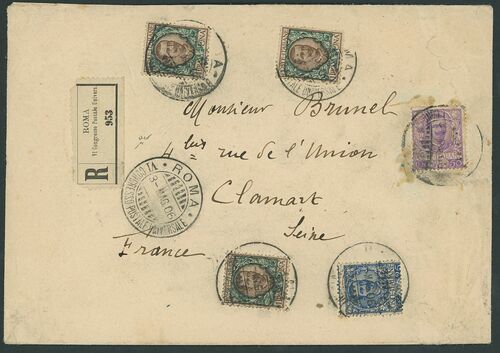 ROMA
VI Congresso Postale Univers.
953
R
Monsieur Brunel
4 bis rue de l'Union
Clamart
Seine
France
ROMA
8 MAG 06
POSTALE UNIVERSALE